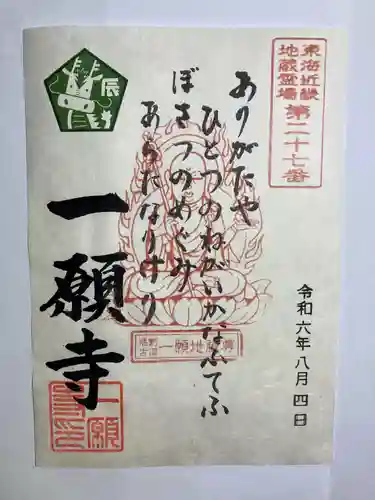 東海近畿
地蔵霊場
第二十七番
令和六年八月四日
ありがたや
ひとつのねがいかなふてふ
ぼさつのめぐみ
あらたなりけり
一願寺
辰
一願地蔵
一願
寺印